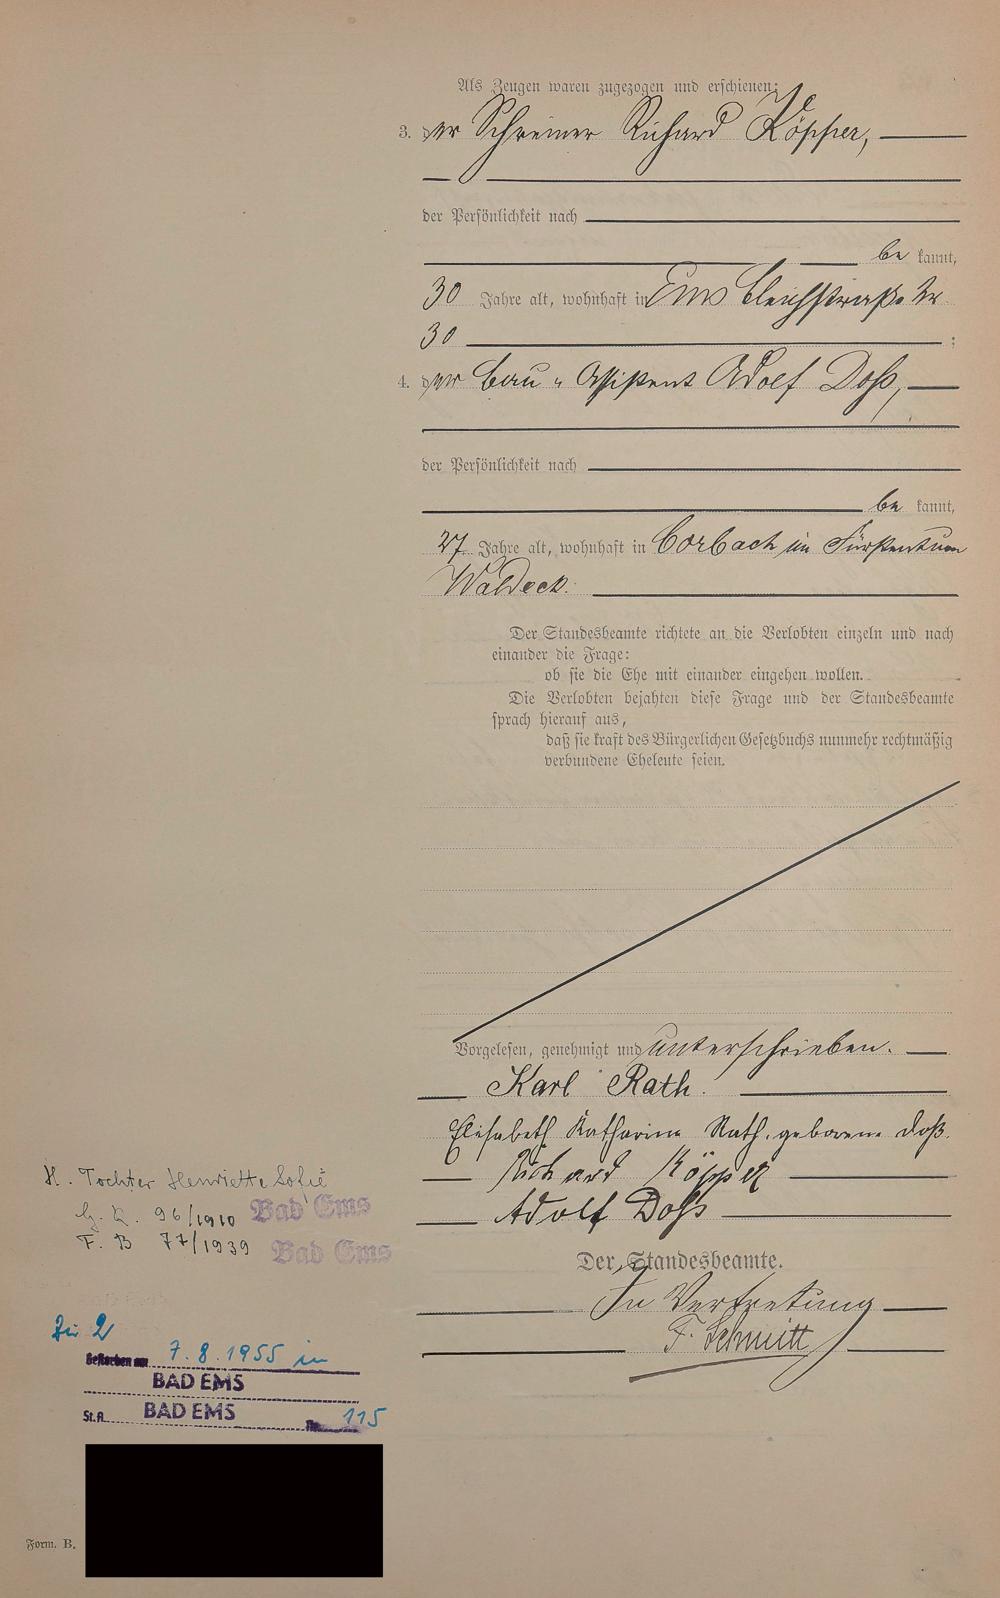 Als Zeugen waren zugezogen und erschienen:
3. der Schreiner Richard Köpper,
der Persönlichkeit nach
be kannt,
30 Jahre alt, wohnhaft in Ems Bleichstraße Nr
30 ;
4. der Bau-Assistent Adolf Doß,
der Persönlichkeit nach
be kannt,
27 Jahre alt, wohnhaft in Corbach im Fürstentum
Waldeck.
Der Standesbeamte richtete an die Verlobten einzeln und nach
einander die Frage:
ob sie die Ehe mit einander eingehen wollen.
Die Verlobten bejahten diese Frage und der Standesbeamte
sprach hierauf aus,
daß sie kraft des Bürgerlichen Gesetzbuchs nunmehr rechtmäßig
verbundene Eheleute seien.
Vorgelesen, genehmigt und unterschrieben.
Karl Rath.
Elisabeth Katharina Rath, geborene Doß.
Richard Köpper
Adolf Doß
Der Standesbeamte.
In Vertretung
F. Schmitt
H. Tochter Henriette Sofie
G. R. 96/1910 Bad Ems
F. B 77/1939 Bad Ems
Zu 2
Gestorben am 7.8.1955 in
BAD EMS
St.A. BAD EMS Nr. 115
Form. B.